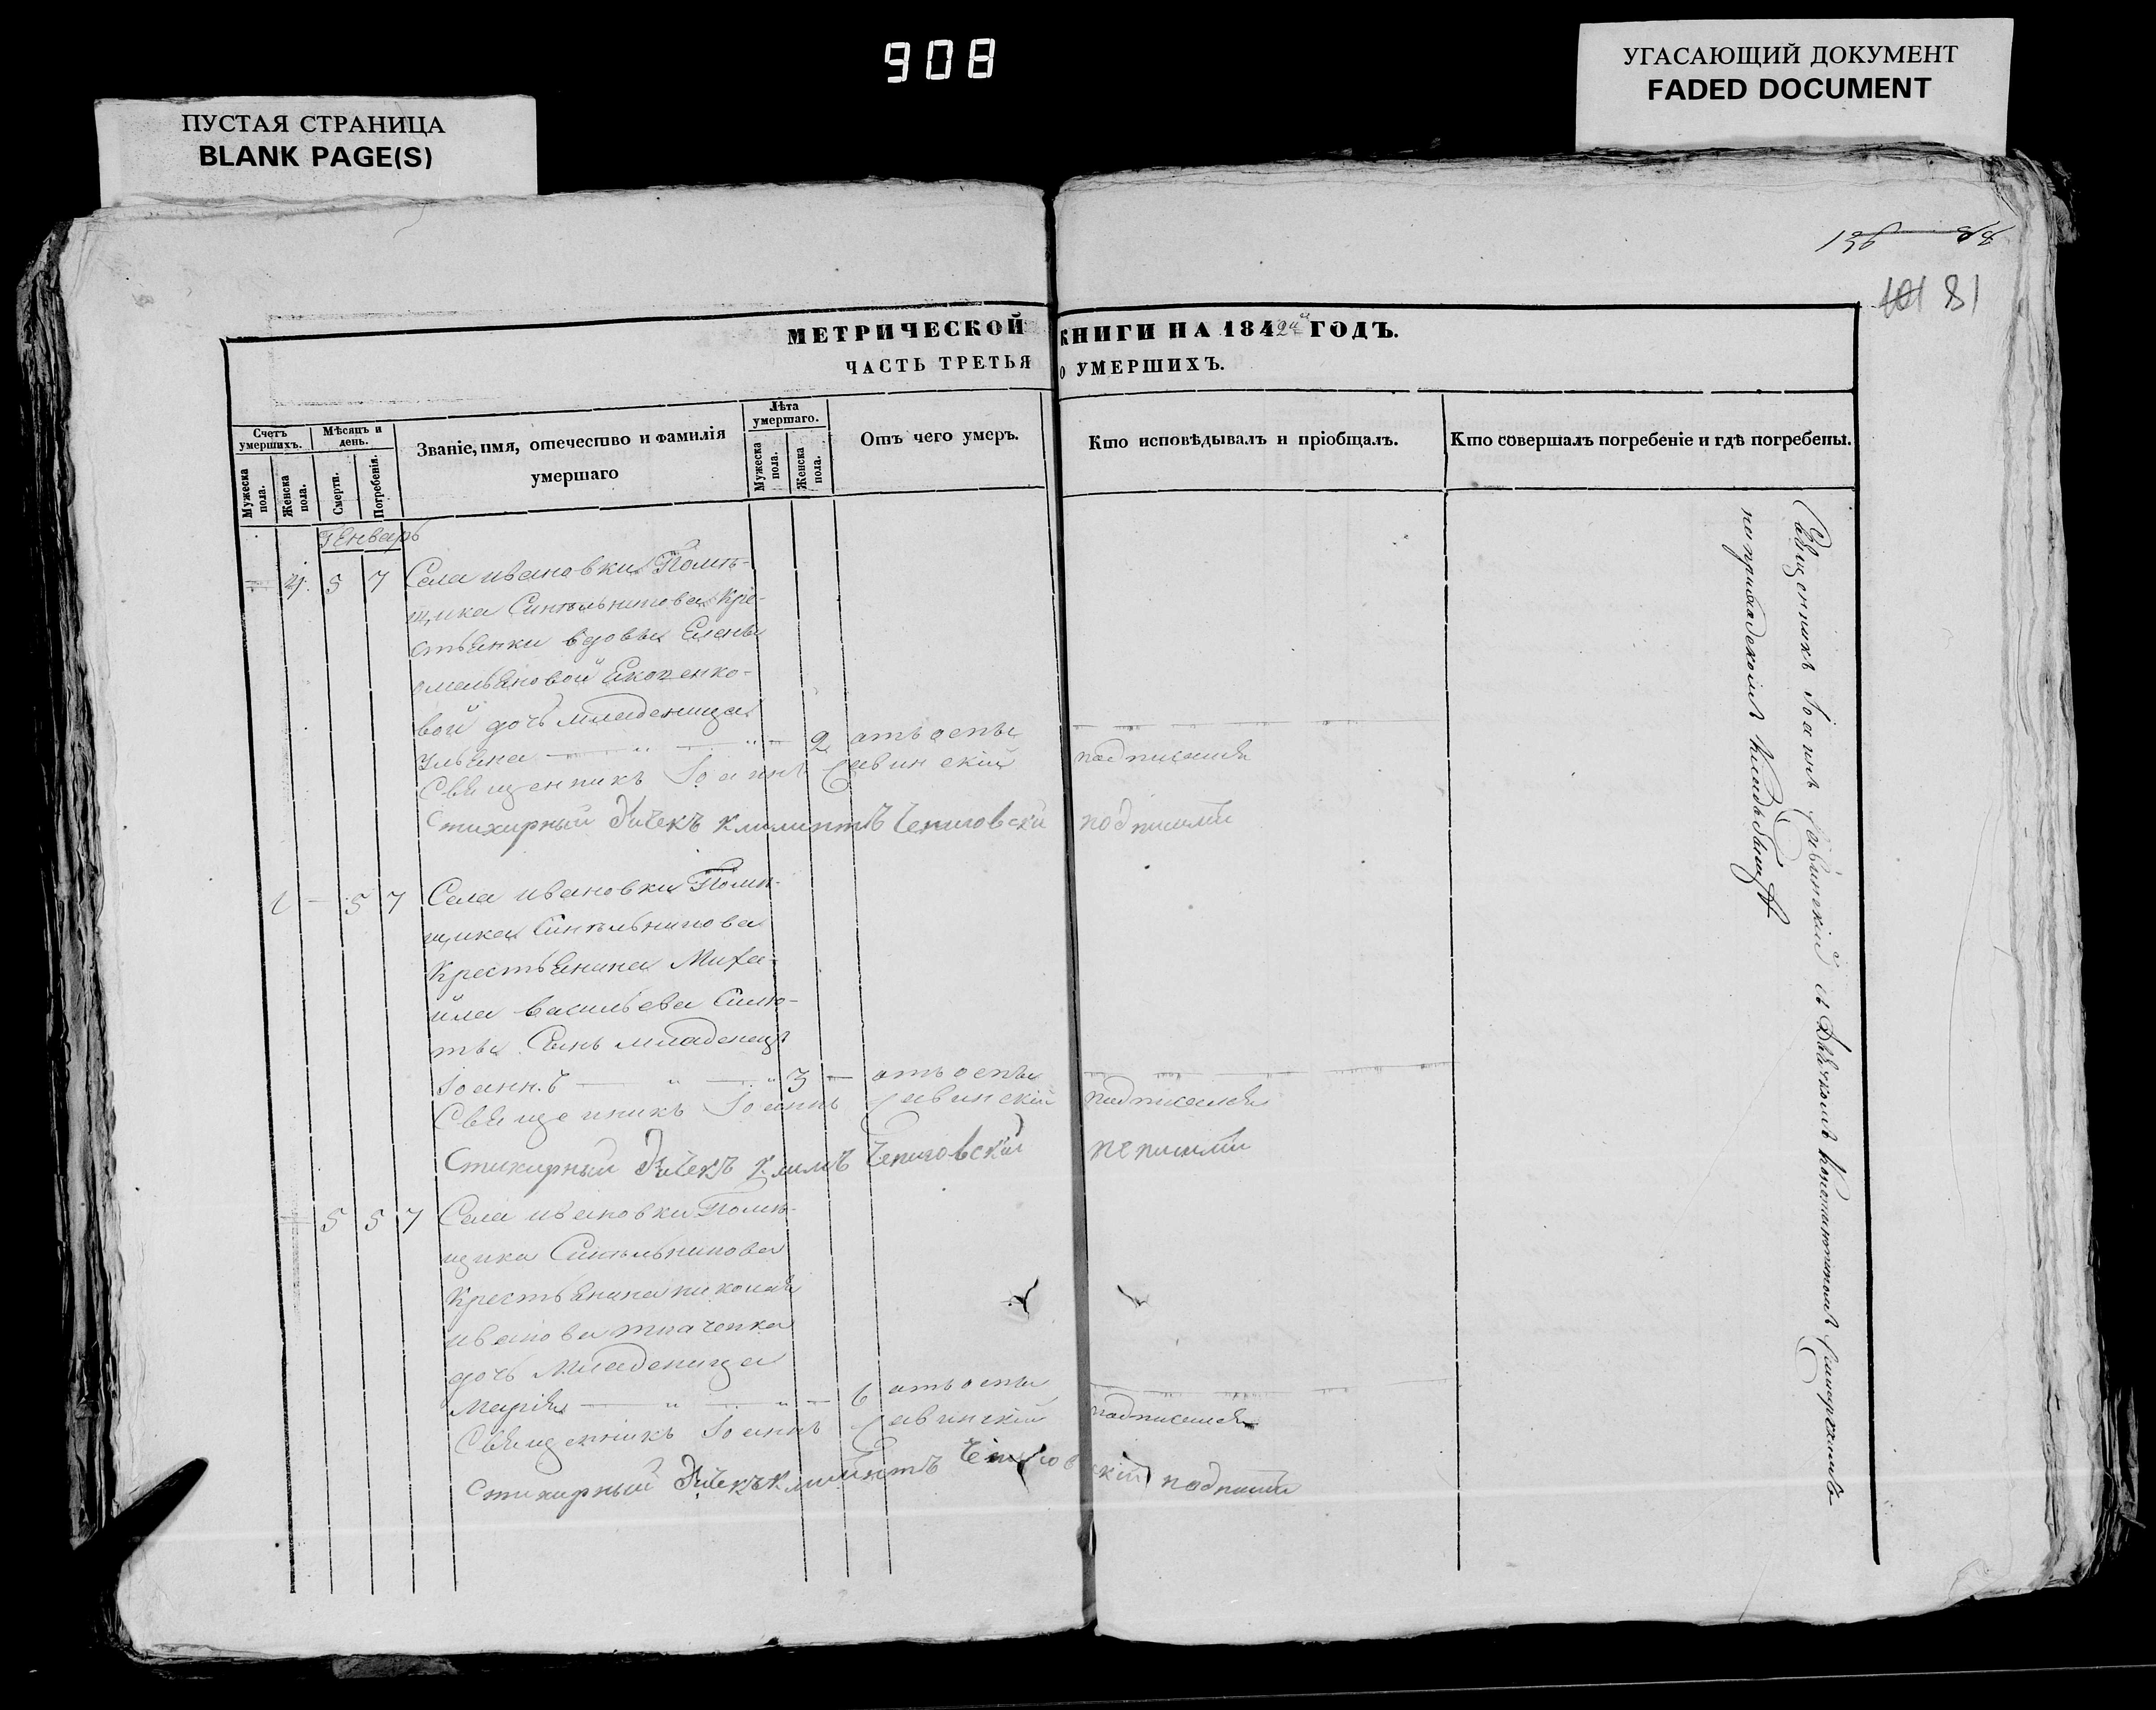 908
ПУСТАЯ СТРАНИЦА
BLANK PAGE(S)
УГАСАЮЩИЙ ДОКУМЕНТ
FADED DOCUMENT
101 81
МЕТРИЧЕСКОЙ КНИГИ НА 1842й ГОДЪ.
ЧАСТЬ ТРЕТЬЯ О УМЕРШИХЪ.
Счетъ умершихъ.
Мужеска пола.
Женска пола.
Мѣсяцъ и день.
Смерти.
Погребенія.
Званіе, имя, отечество и фамилія
умершаго
Лѣта умершаго.
Мужеска пола.
Женска пола.
Отъ чего умеръ.
Кто исповѣдывалъ и пріобщалъ.
Кто совершалъ погребеніе и гдѣ погребены.
Генварь
— 4. 5 7 Села ивановки Помѣ-
щика Синельникова Кре-
стьянки вдовы Елены
омельяновой
вой дочь младеница
— " — " — 2 отъ оспы
Священникъ Іоаннъ Савинскій подписался
Стихарный Дячекъ Климентъ
1 — 5 7 Села ивановки Помѣ-
щика Синельникова
Крестьянина Миха-
йла васильева
ты Сынъ младенецъ
Іоаннъ — " — " 3 — отъ оспы
Священникъ Іоаннъ Савинскій подписался
Стихарный Дячекъ Климъ
— 5 5 7 Села ивановки Помѣ-
щика Синельникова
Крестьянина николая
иванова ткаченка
дочь Младеница
Марія — " — " — 6 отъ оспы
Священникъ Іоаннъ Савинскій подписался
Стихарный Дячекъ Климентъ
Священникъ Іоаннъ Савинскій съ Дьячкомъ Константиномъ
на приходскомъ Кладбищѣ